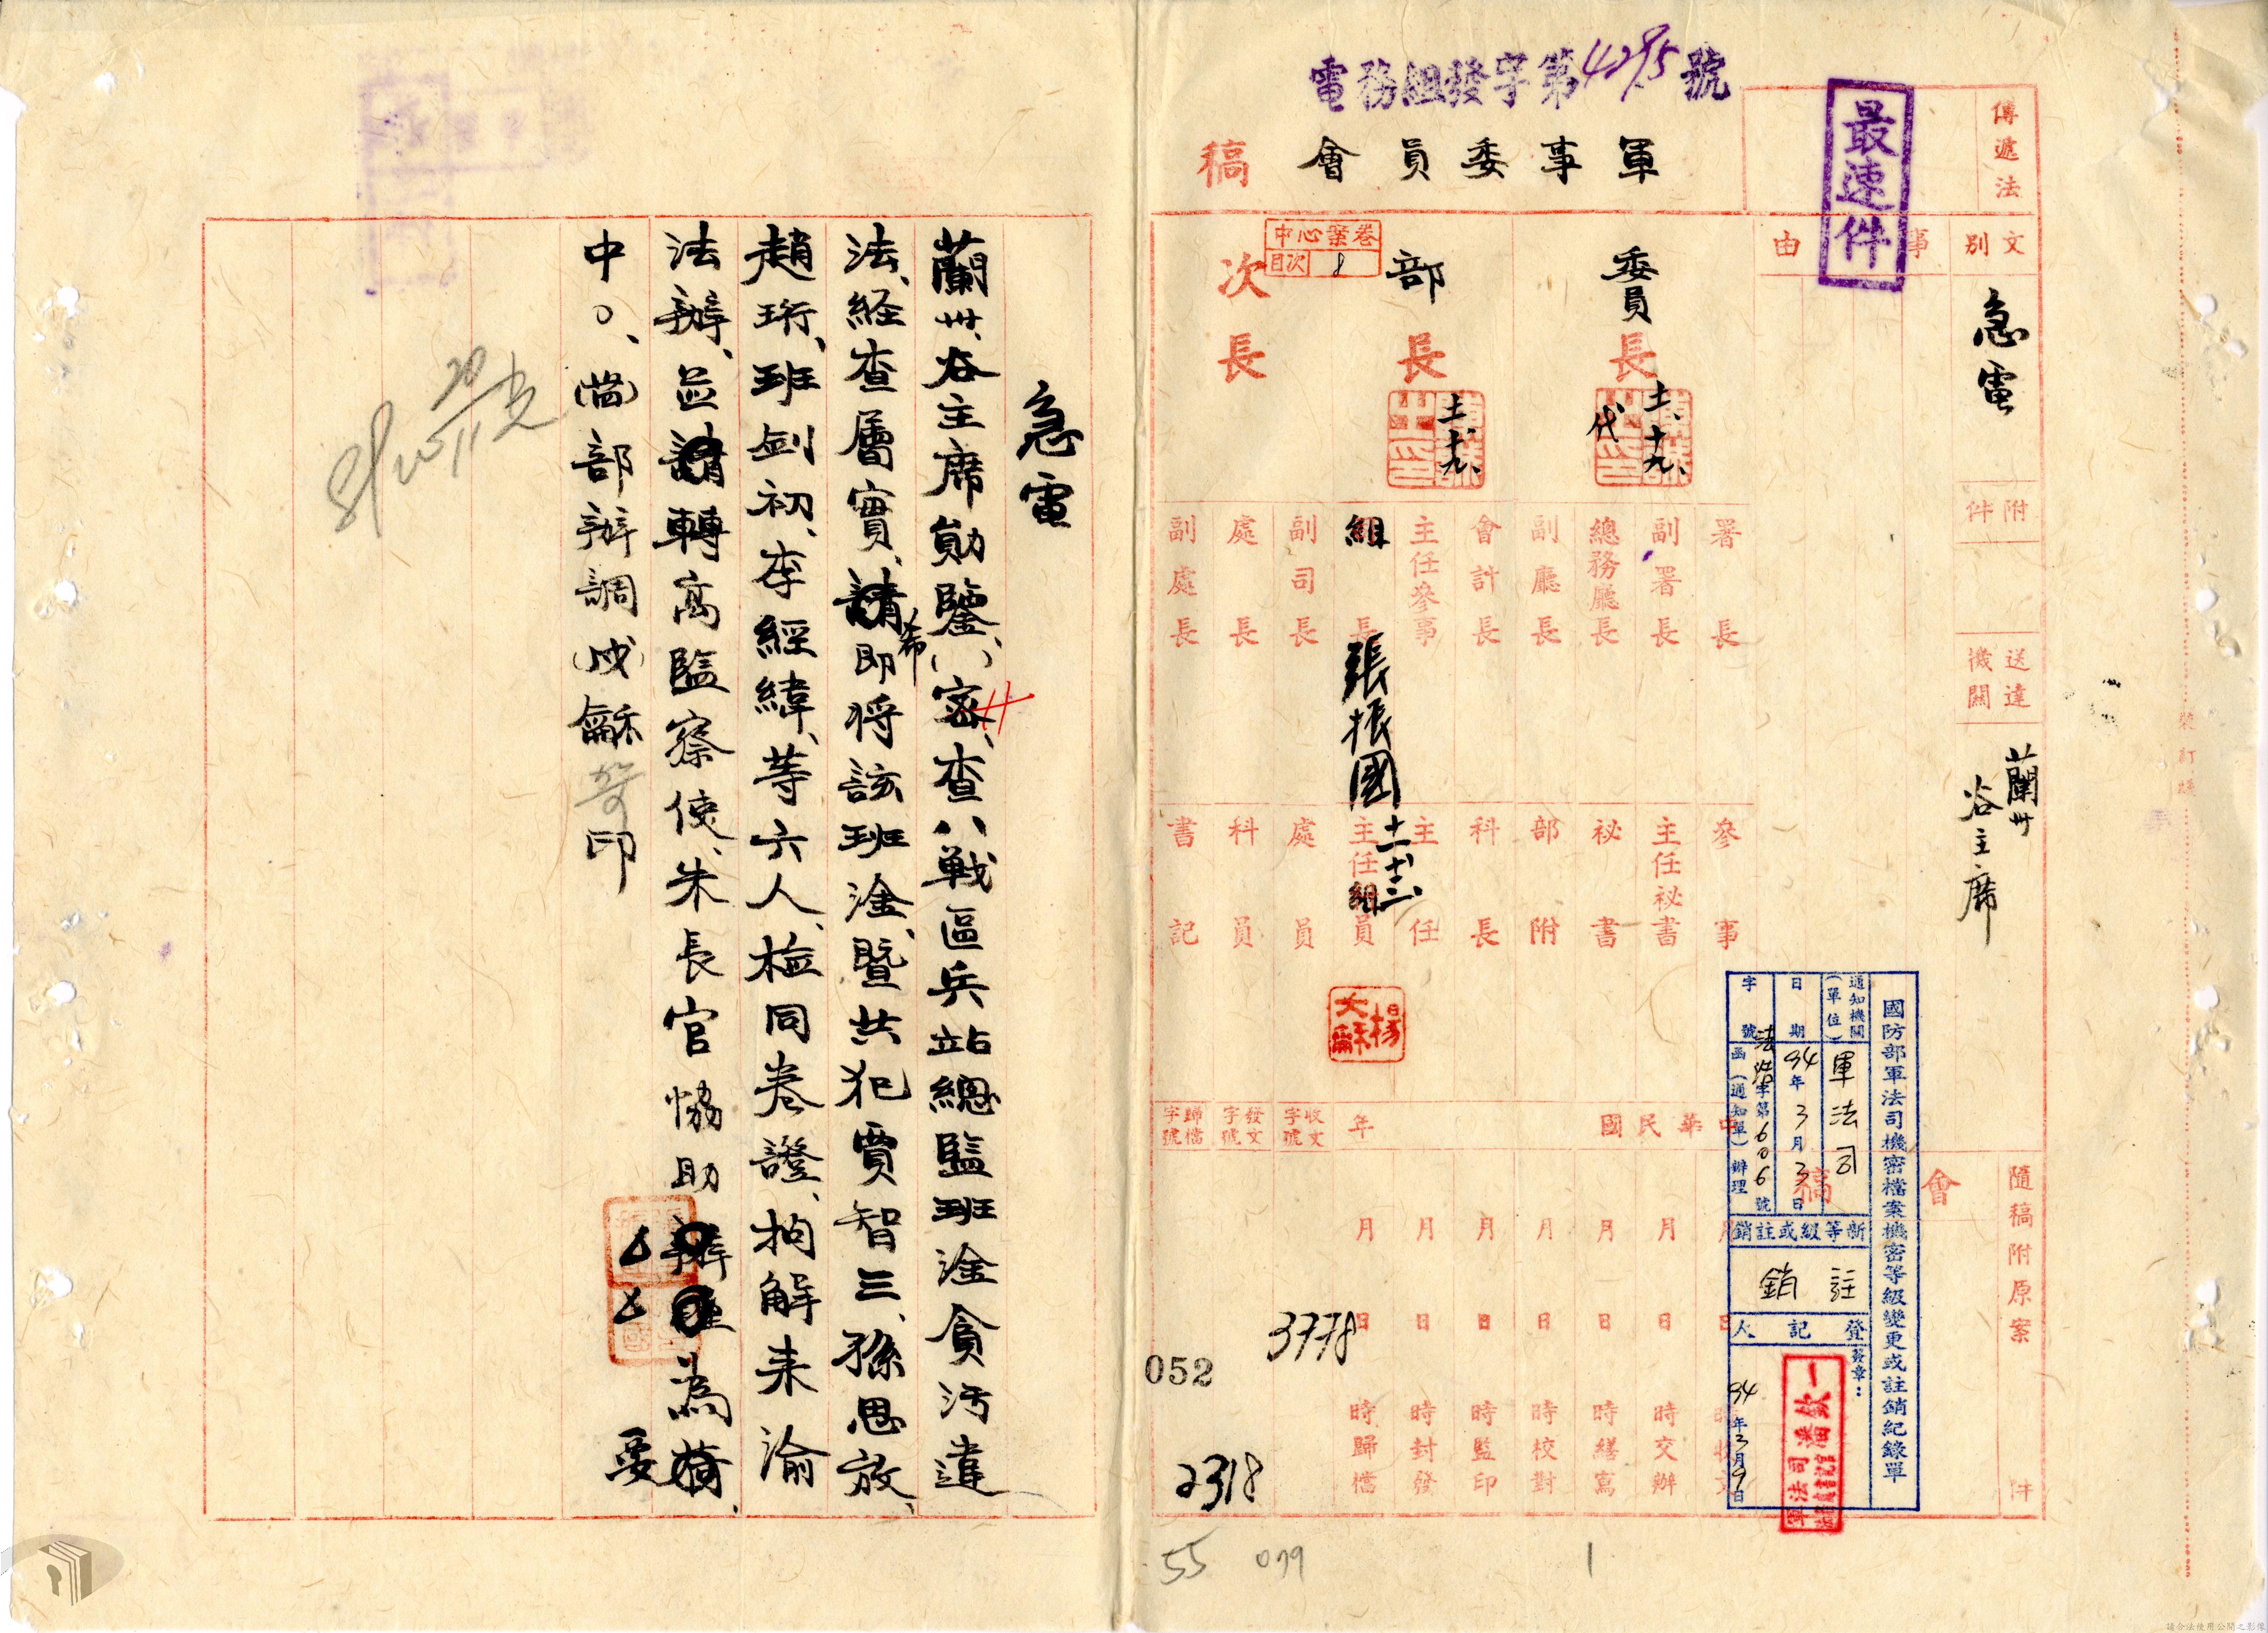 電務組發字第4295號
軍事委員會稿
最速件
傳遞法
文別
急電
事由
附件
送達機關
蘭州
谷主席
委員長
代
十一、十九、
部長
十一、十九、
次長
中心案卷
目次 8
署長
副署長
總務廳長
副廳長
會計長
主任參事
組長
張振國 十一、十三、
副司長
處長
副處長
參事
主任秘書
秘書
部附
科長
主任
主任組員
處員
科員
書記
楊文龢
中華民國 年
收文字號
發文字號
歸檔字號
隨稿附原案 件
會稿
月 日 時收文
月 日 時交辦
月 日 時繕寫
月 日 時校對
月 日 時監印
月 日 時封發
月 日 時歸檔
3778
2318
052
國防部軍法司機密檔案機密等級變更或註銷紀錄單
通知機關(單位) 軍法司
日期 94年3月3日
字號 法浩字第6006號
函(通知單)辦理
新等級或註銷
註銷
登記人
簽章：
94年3月9日
55 079 1
裝訂線
急電
蘭州、谷主席勛鑒、(　)密、查八戰區兵站總監班淦貪污違
法、経查屬實、希即将該班淦、暨共犯賈智三、孫思放、
趙珩、班剑初、李經緯、等六人、檢同卷證、拘解来渝
法辦、並請轉高監察使、朱長官恊助為要
中○、(　)部辦調(戌)龢印
請合法使用公開之影像